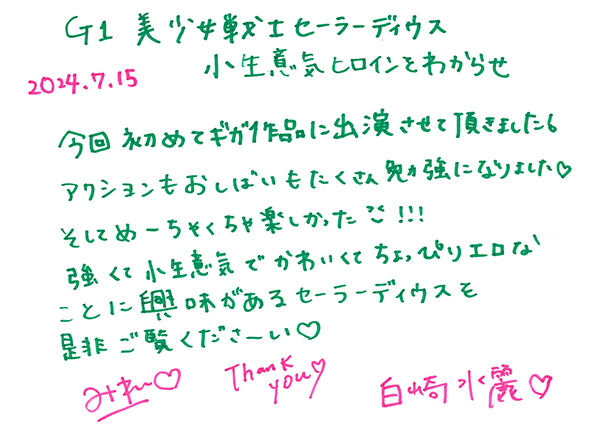 G1 美少女戦士セーラーディウス
小生意気ヒロインをわからせ
2024.7.15
今回初めてギガ作品に出演させて頂きました！
アクションもおしばいもたくさん勉強になりました♡
そしてめーちゃくちゃ楽しかった!!!
強くて小生意気でかわいくてちょっぴりエロな
ことに興味があるセーラーディウスを
是非ご覧くださーい♡
みれー♡ Thank you♡ 白崎水麗♡